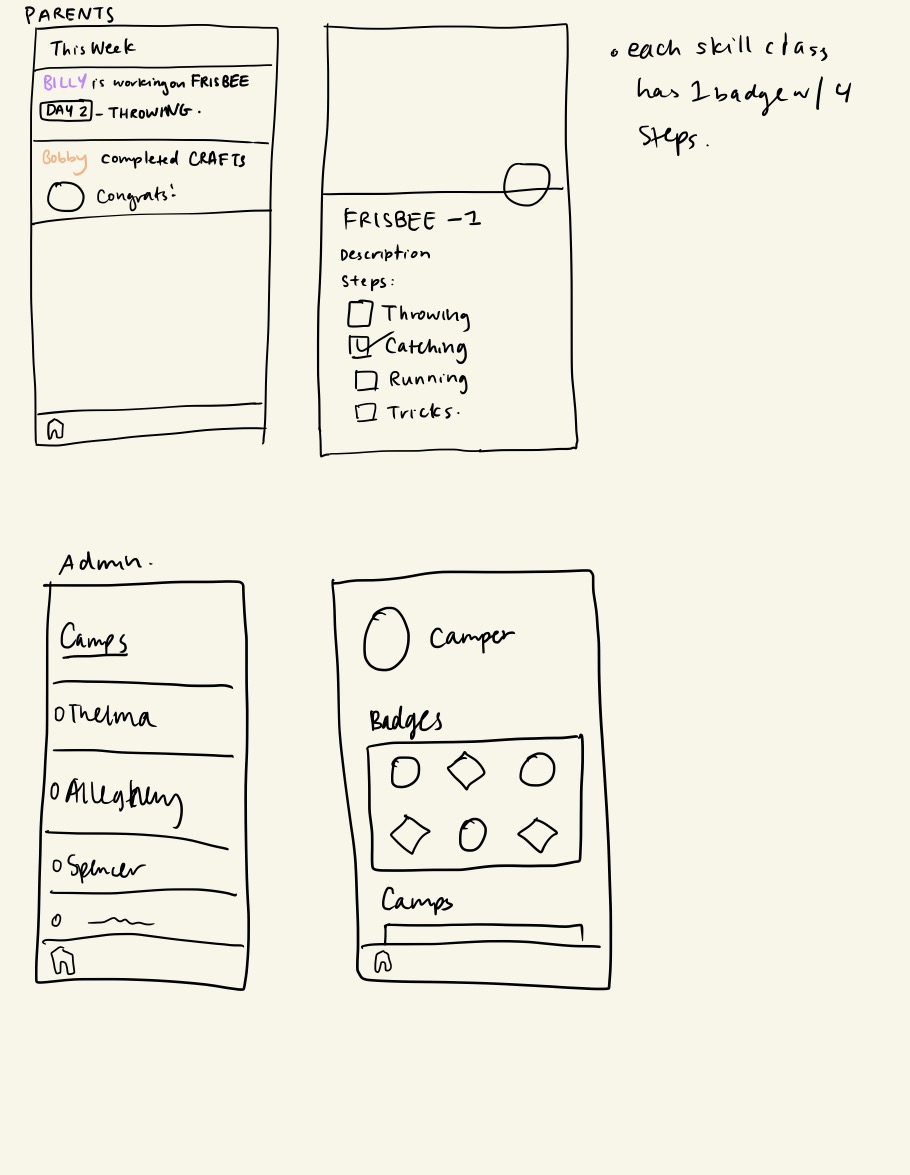 PARENTS
This Week
BILLY is working on FRISBEE
DAY 2 - THROWING.
Bobby completed CRAFTS
Congrats!
FRISBEE -1
Description
Steps:
Throwing
Catching
Running
Tricks.
• each skill class
has 1 badge w/ 4
steps.
Admin.
Camps
Thelma
Allegheny
Spencer
Camper
Badges
Camps